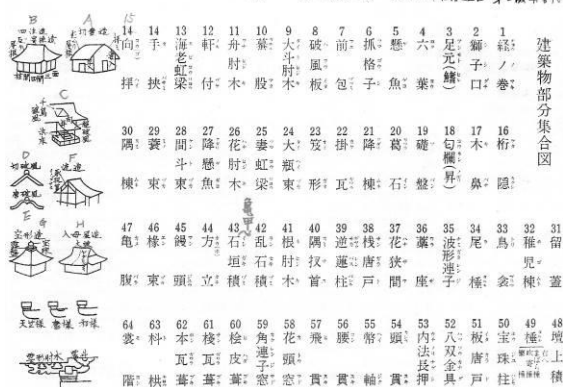 建築物部分集合図
1 経ノ巻
2 獅子口
3 足元(鰭)
4 六葉
5 懸魚
6 狐格子
7 前包
8 破風板
9 大斗肘木
10 蟇股
11 舟肘木
12 軒付
13 海老虹梁
14 手挟
14 向拝
15
16 桁隠
17 木鼻
18 勾欄(昇)
19 礎盤
20 葛石
21 降棟
22 掛瓦
23 笈形
24 大瓶束
25 妻虹梁
26 花肘木
27 降懸魚
28 間斗束
29 蓑束
30 隅棟
31 留蓋
32 稚児棟
33 鳥衾
34 尾棰
35 波形連子
36 藁座
37 花狭間
38 桟唐戸
39 逆蓮柱
40 隅扠首
41 根肘木
42 乱石積
43 石垣積
亀甲
44 方立
45 饅頭
46 椽束
47 亀腹
48 壇上積
49 棰
50 宝珠柱
51 板唐戸
52 八双金具
53 内法長押
54 頭貫
55 幣軸
56 腰貫
57 飛貫
58 花頭窓
59 角連子窓
60 桧皮葺
61 桟瓦葺
62 本瓦葺
63 料栱
64 裳階
A 切妻造
B 四注造
C
千鳥破風
D 切破風
F 流造
唐破風
E
G 宝形造
H 入母屋造
天竺様 唐様 和様